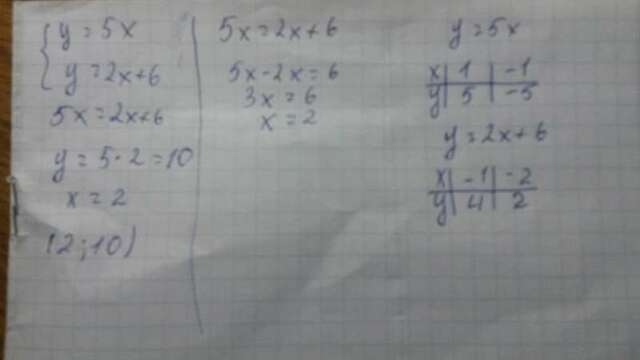 y = 5x
y = 2x+6
5x = 2x+6
y = 5·2 = 10
x = 2
(2;10)
5x = 2x+6
5x-2x = 6
3x = 6
x = 2
y = 5x
x | 1 | -1
y | 5 | -5
y = 2x+6
x | -1 | -2
y | 4 | 2